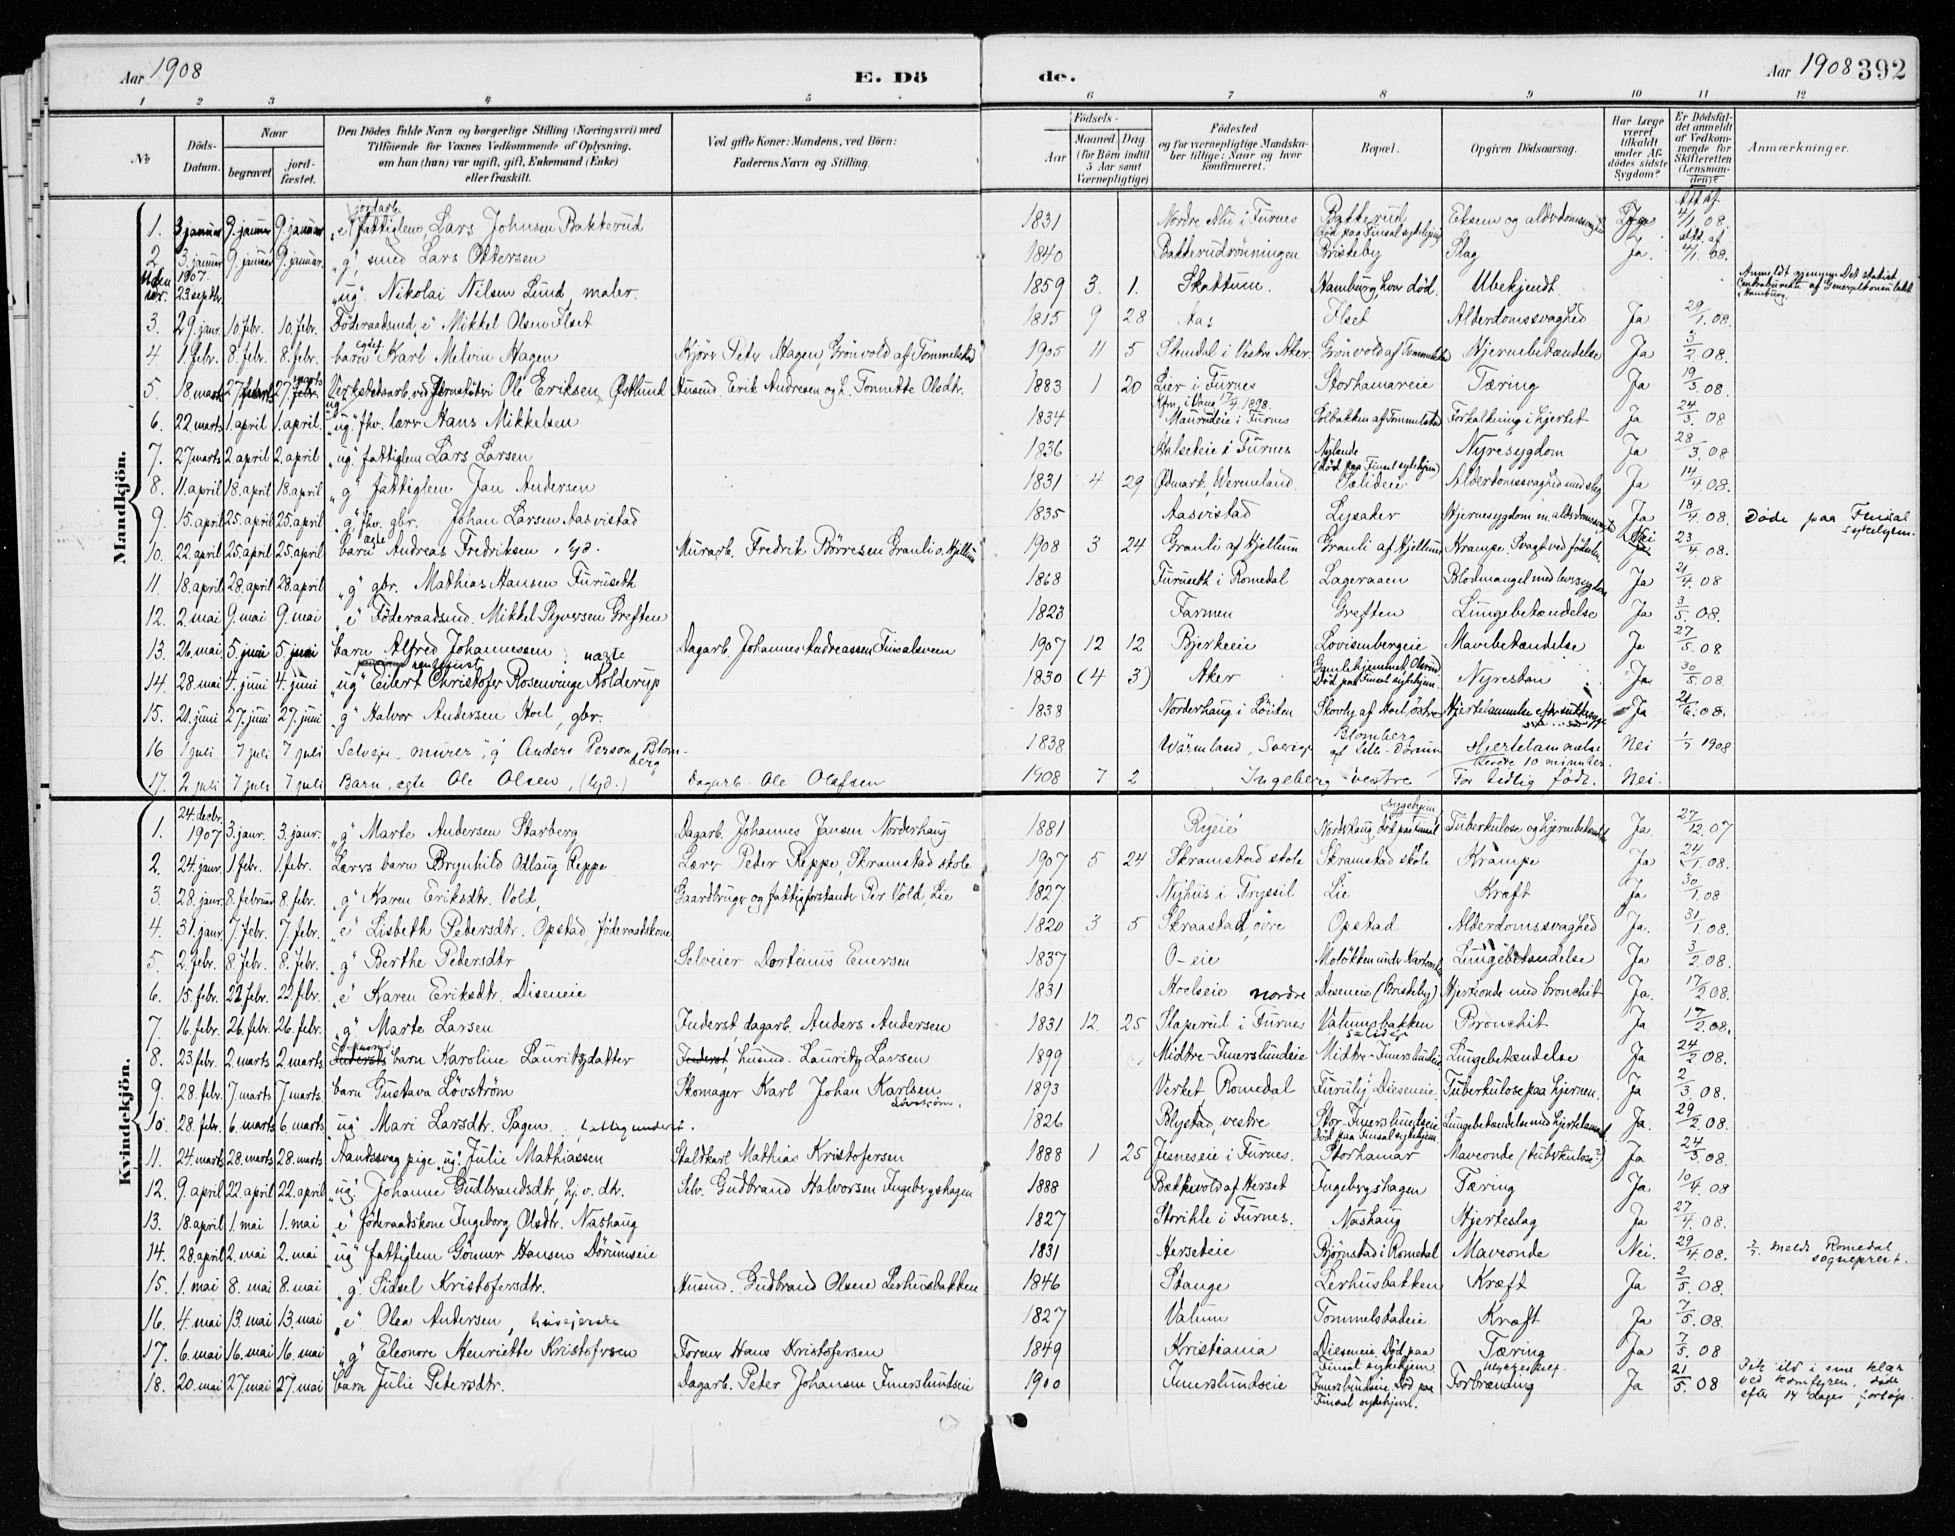 Aar 1908 E. Dö de. Aar 1908 392
1 2 3 4 5 6 7 8 9 10 11 12
No
Döds-Datum.
Naar
begravet
jord-fæstet.
Den Dödes fulde Navn og borgerlige Stilling (Næringsvei) med
Tilföiende for Voxnes Vedkommende af Oplysning,
om han (hun) var ugift, gift, Enkemand (Enke)
eller fraskilt.
Ved gifte Koner: Mandens, ved Börn:
Faderens Navn og Stilling.
Födsels-
Aar
Maaned
Dag
(for Börn indtil
5 Aar samt
Værnepligtige)
Födested
og for værnepligtige Mandska-
ber tillige: Naar og hvor
konfirmeret.
Bopæl.
Opgiven Dödsaarsag.
Har Læge
været
tilkaldt
under Af-
dödes sidste
Sygdom?
Er Dödsfal-
det anmeldt
af Vedkom-
mende for
Skifteretten
(Lensman-
den)?
Anmærkninger.
Mandkjön.
1. 3 januar 9. januar 9. januar "e" jordarb. fattiglem, Lars Johnsen Bakkerud 1831 Nordre Alu i Furnes Bakkerud (död paa Finsal sykehjem) Eksem og alderdomssvaghed Ja Att. af 4/1 08.
2 3. januar 9. januar 9 januar. "g", smed Lars Ottersen 1840 Bakkerudrönningen Briskeby Slag Ja. att. af 4/1 08.
Uden nr. 1907 23 septbr. "ug". Nikolai Nilsen Lund, maler. 1859 3. 1. Skattum. Hamburg, hvor död. Ubekjendt. Anmeldt gjennem Det statist. Centralbureau af Generalkonsulatet Hamburg.
3. 29. janr. 10. febr. 10. febr. Föderaadsmd, "e" Mikkel Olsen Ilset 1815 9 28 Aas Ilset Alderdomssvaghed Ja 29/1. 08.
4 1. febr. 8. febr. 8. febr. barn egtef. Karl Melvin Hagen Kjörer Peter Hagen, Grönvold af Tommelstad 1905 11 5 Slemdal i Vestre Aker. Grönvold af Tommelstad Hjernebetændelse Ja 3/2 08.
5 18 marts 27 marts 27. marts Verkstedsarb. ved Jernstöberi Ole Eriksen Östlund "ug" Husmd. Erik Andresen og h. Tonnette Olsdtr. 1883 1 20 Lier i Furnes Kfm. i Vang 17/4 1898. Storhamareie Tæring Ja 19/3 08.
6. 22. marts 1. april 1. april. "ug" fhv. lærer Hans Mikkelsen 1834 Maurudeie i Furnes Solbakken af Tommelstad Forkalkning i hjertet Ja 24/3 08
7. 27 marts 2. april 2. april "ug". fattiglem Lars Larsen 1836 Halseteie i Furnes Nylande (död paa Finsal sykehjem) Nyresygdom Ja 28/3 08
8. 11. april 18. april 18. april "g" fattiglem Jan Andersen 1831 4 29 Ödmark, Wermeland. Salideie Alderdomssvaghed med slag Ja 14/4 08.
9. 15. april 25. april 25. april "g", fhv. gbr. Johan Larsen Aasvistad 1835 Aasvistad Lysaker Hjernesygdom m. alderdomssvaghed Ja 18/4 08. Döde paa Finsal sykehjem.
10. 22. april 25. april 25. april barn egte Andreas Fredriksen, hjd. Murarb. Fredrik Börresen Granli o. Hjellum 1908 3 24 Granli af Hjellum Granli af Hjellum Krampe. Svagt ved födselen. Nei 23/4 08.
11. 18. april 28. april 28. april "g" gbr. Mathias Hansen Furuseth 1868 Furuseth i Romedal Lageraaen Blodmangel med leversygdom Ja 21/4 08
12. 2. mai 9. mai 9. mai "e" Föderaadsmd. Mikkel Syversen Greften 1823 Farmen Greften Lungebetændelse Ja 3/5 08.
13. 26. mai. 5. juni 5. juni barn Alfred Johannessen uægte Dagarb. Johannes Andreassen Finsalsveen 1907 12 12 Bjerkeeie Lovisenbergeie Mavebetændelse Ja 27/5 08
14. 28. mai 4. juni 4. juni "ug" rentenist Eilert Christofer Rosenvinge Kolderup 1830 (4 3) Aker Gamlehjemmet Olsrud Död paa Finsal sykehjem. Nyresten Ja 30/5 08.
15. 21. juni 27. juni 27. juni "g" Halvor Andersen Hoel, gbr. 1838 Norderhaug i Löiten Skovly af Hoel östre Hjertelammelse efter sukkersyge Ja 21/6 08.
16 1 juli 7 juli 7 juli Selveje. murer, "g" Anders Person Blomberg 1838 Wärmland, Sverige Blomberg af Lille-Dörum Hjertelammelse. Varede 10 minuter. Nei 1/7 1908
17. 2 juli 7 juli 7 juli Barn, egte Ole Olsen, (hjd.) Dagarb. Ole Olafsen 1908 7 2 Ingeberg vestre For tidlig födt. Nei.
Kvindekjön.
1. 24. decbr. 1907 3. janr. 3. janr. "g" Marte Andersen Starberg Dagarb. Johannes Jansen Norderhaug 1881 Ryeie Norderhaug, död paa Finsal sygehjem Tuberkulose og hjernebetændelse Ja. 27/12 07
2. 24. janr 1. febr. 1. febr. Lærers barn Brynhild Odlaug Reppe Lærer Peter Reppe, Skramstad skole 1907 5 24 Skramstad skole Skramstad skole Krampe Ja 24/1 08.
3 28. janr. 8. februar 8. febr. "g" Karen Eriksdtr. Vold Gaardbruger og fattigforstander Per Vold, Lie 1827. Nyhus i Trysil Lie Kræft Ja 30/1 08
4. 31. janr. 7. febr. 7. febr. "e" Lisbeth Petersdtr. Opstad, föderaadskone 1820 3 5 Skraastad, övre Opstad Alderdomssvaghed Ja. 31/1 08.
5. 2. febr. 8. febr. 8. febr. "g" Berthe Petersdtr Selveier Dorteinus Enersen 1837 O-eie Molökken under Lungebetændelse Ja 3/2 08.
6. 15. febr. 22 febr. 22. febr. "e" Karen Eriksdtr. Diseneie 1831 Hoelseie nordre Deseneie (Briskeby) Hjerteonde med bronchit Ja. 17/2 08.
7. 16. febr. 26. febr. 26. febr. "g" Marte Larsen Inderst, dagarb. Anders Andersen 1831 12 25 Staperud i Furnes Valumsbakken Bronchit Ja 17/2 08.
8. 23 febr. 2. marts 2. marts. Inderst barn Karoline Lauritzdatter Inderst, husmd. Lauritz Larsen 1899 Midtre-Imerslundeie Midtre-Imerslundeie Lungebetændelse Ja 24/2 08.
9. 28. febr. 7. marts 7. marts barn Gustava Lövström Skomager Karl Johan Karlsen Lövström. 1893 Verket Romedal Furuly Dieseneie. Tuberkulose paa hjernen. Ja 2/3 08.
10 28. febr. 6. marts 6 marts "ug". Mari Larsdtr. Sagen, 1826 Blystad, vestre. Stor-Imerslundeie Död paa Finsal sykehjem. Lungebetændelse med hjertelammelse Ja. 29/2 08.
11. 24. marts 28. marts 28. marts Aandssvag pige ug. Julie Mathiassen Staldkarl Mathias Kristofersen 1888 1 25 Jesneseie i Furnes. Storhamar Maveonde (tuberkulose?) Ja 24/3 08.
12. 9. april 22. april 22. april "ug." Johanne Gudbrandsdtr. hj. v. dtr. Selv. Gudbrand Halvorsen Ingebergshagen 1888 Bækkevold af Herset Ingebergshagen Tæring Ja 10/4 08
13. 18. april 1. mai 1. mai "e" föderaadskone Ingeborg Olsdtr. Nashaug 1827 Storihle i Furnes. Nashaug Hjerteslag Ja 27/4 08.
14. 28. april 2. mai 2. mai "ug" fattiglem Gönner Hansen Dörumseie 1831 Herseteie Björnstad i Romedal Maveonde Nei. 29/4 08. meldt Romedal sogneprest.
15. 1. mai 8. mai 8 mai "g". Sidsel Kristofersdtr. Husmd. Gudbrand Olsen Lerhusbakken 1846 Stange Lerhusbakken Kræft Ja 2/5 08.
16. 4. mai 13. mai 13. mai "e" Olea Andersen, husejerske 1827 Valum Tommelstadeie Kræft Ja 7/5 08.
17. 6. mai 16. mai 16. mai "g" Eleonore Henriette Kristofersen Former Hans Kristofersen 1849 Kristiania Dieseneie. Död paa Finsal sykehjem Tæring Ja 7/5 08
18. 20. mai 27. mai 27. mai barn Julie Petersdtr. Dagarb. Peter Johansen Imerslundseie 1900 Imerslundseie Imerslundseie. Död paa Finsal sykehjem. Ulykkestilf. Forbrænding Ja 21/5 08 Fik ild i sine klær ved komfyren, döde efter 14 dages forlöp.